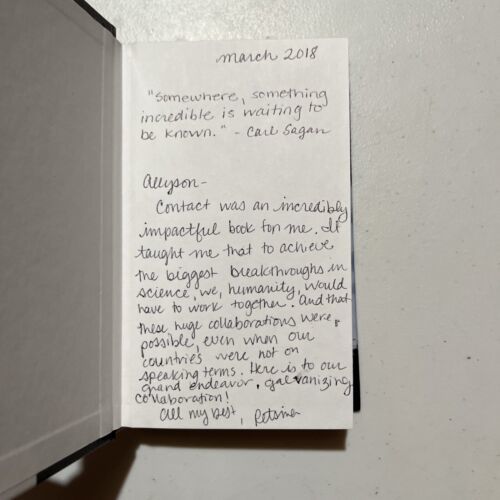 march 2018
"Somewhere, something
incredible is waiting to
be known." - Carl Sagan
Allyson-
Contact was an incredibly
impactful book for me. It
taught me that to achieve
the biggest breakthroughs in
science, we, humanity, would
have to work together. And that
these huge collaborations were,
possible, even when our
countries were not on
speaking terms. Here is to our
grand endeavor, galvanizing
collaboration!
All my best,